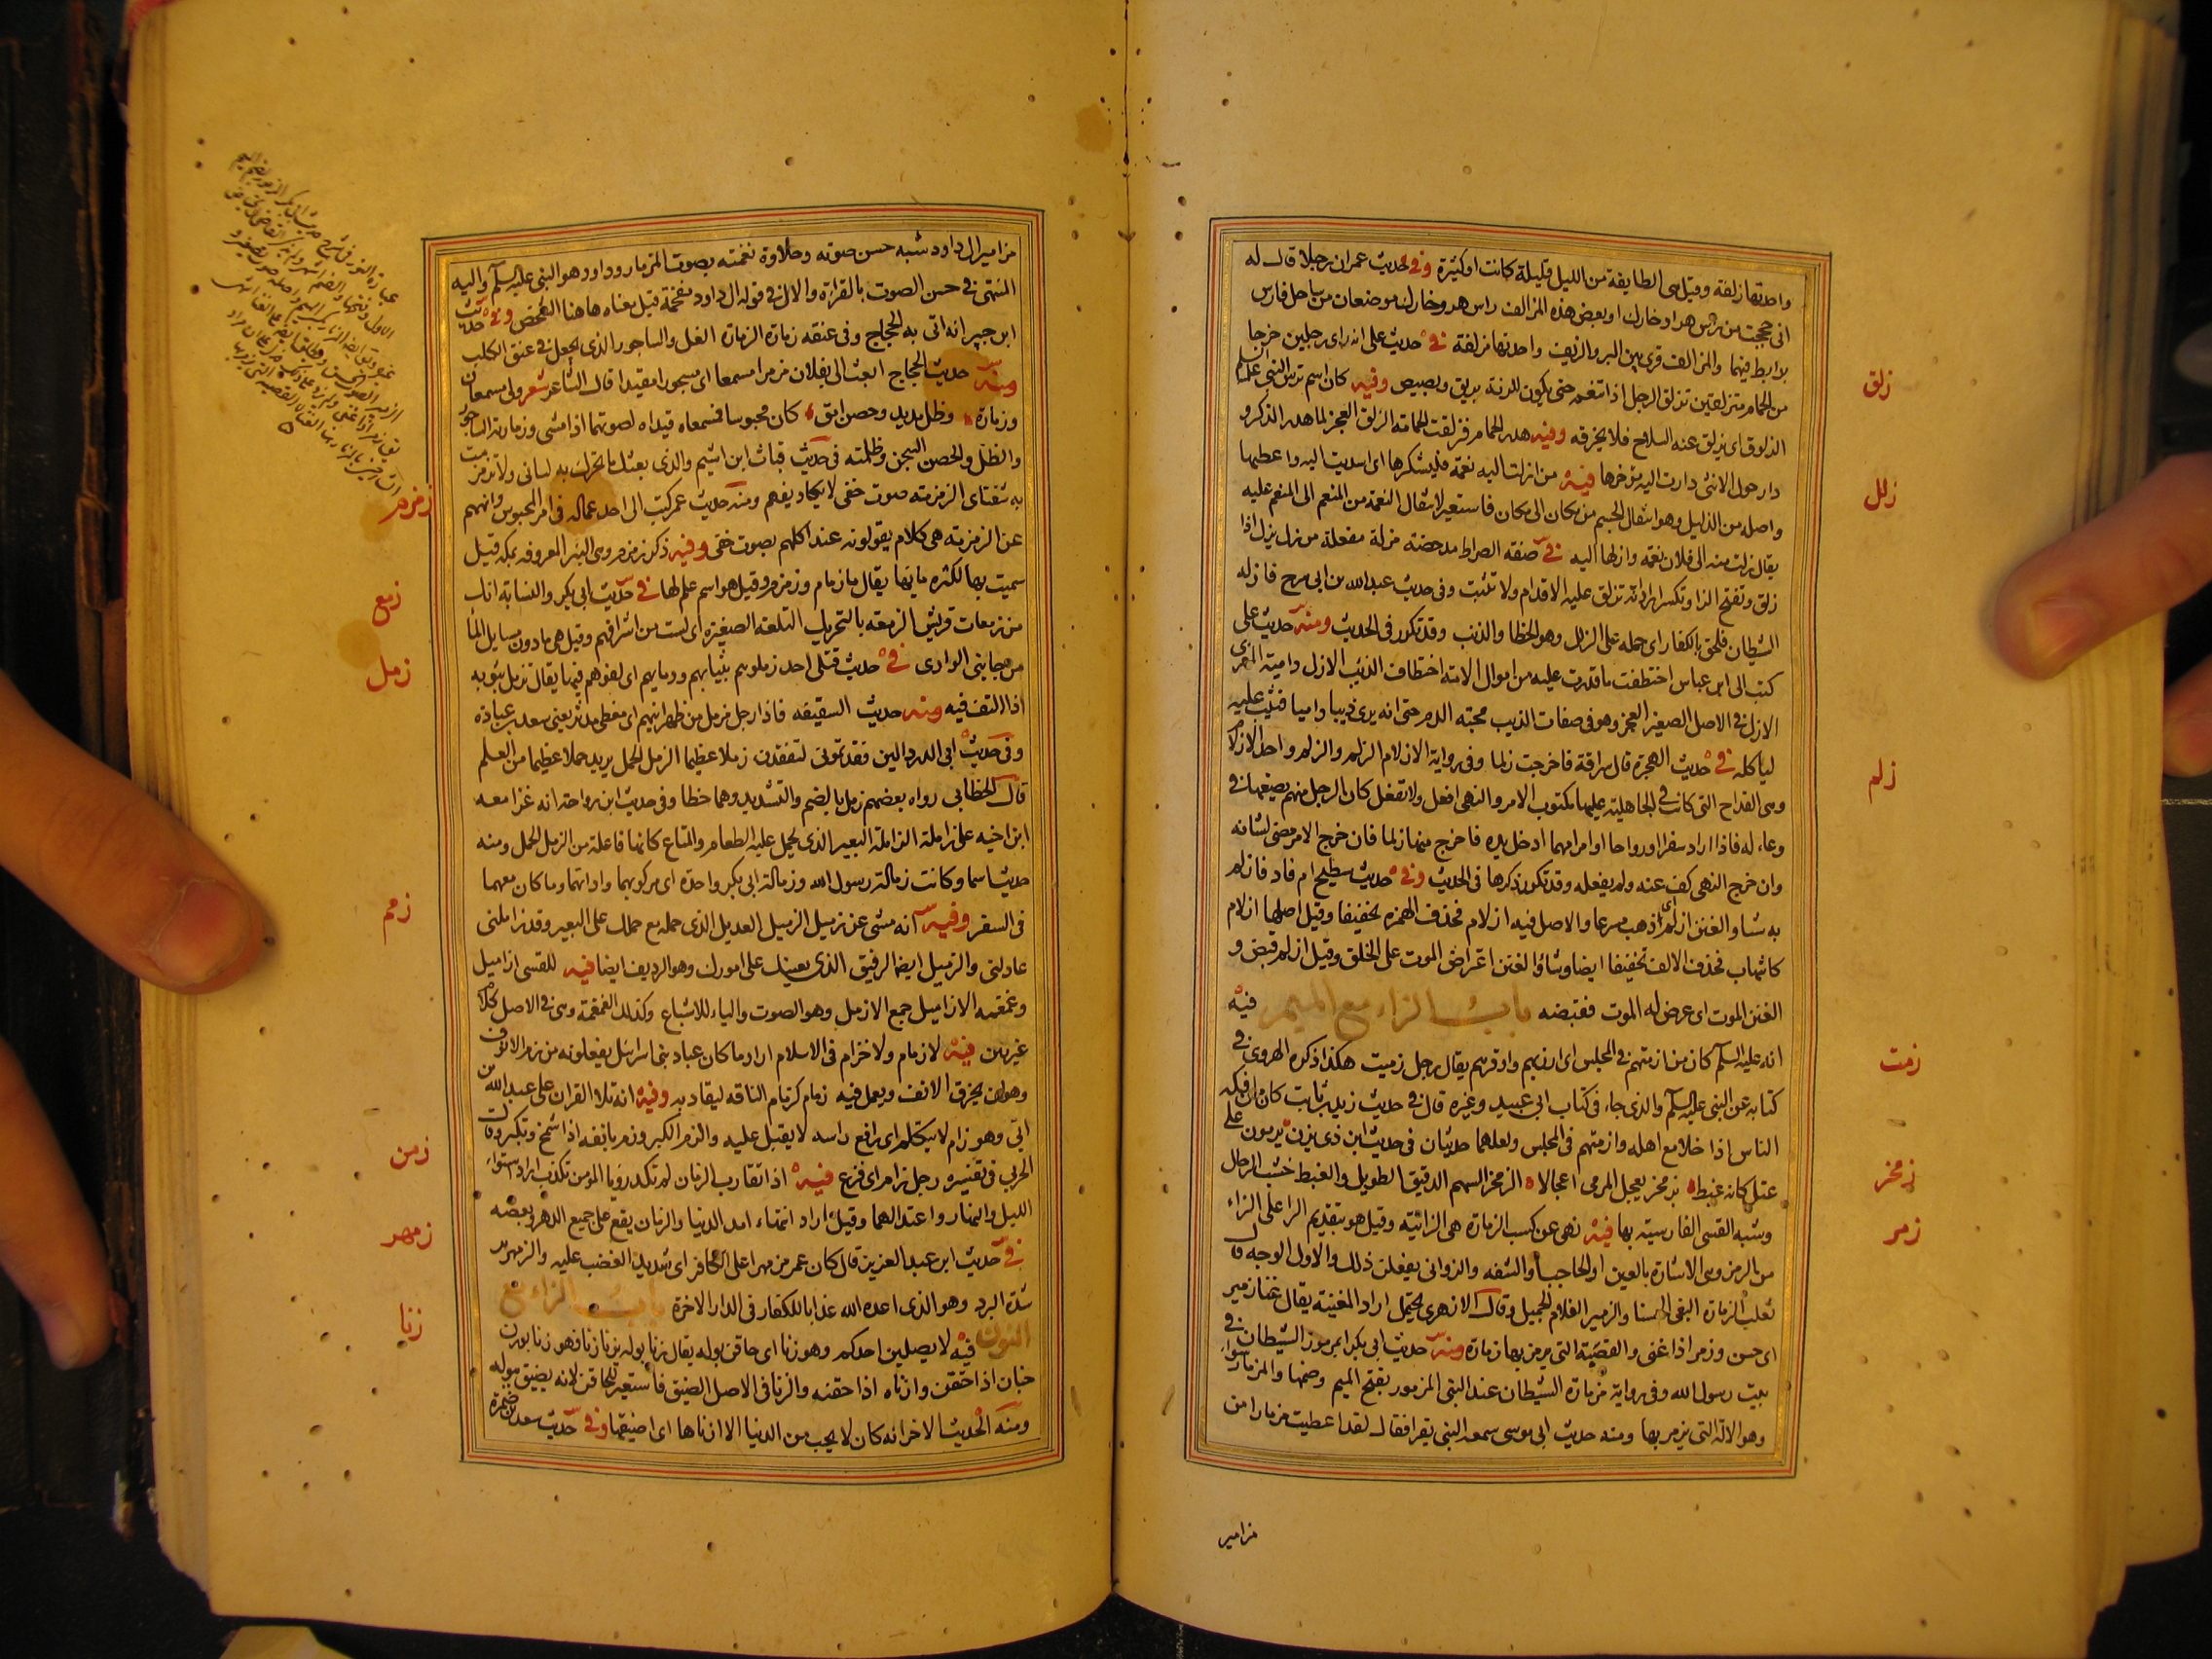 واحدتها زلفة وقيل هى الطايفة من الليل قليلة كانت او كثيرة وفى حديث عمران رجلا قال له
انى حججت من راس هر او خارك او بعض هذه المزالف راس هر وخارك موضعان من ساحل فارس
يرابط فيهما والمزالف قرى بين البر والريف واحدتها مزلفة فى حديث على انه راى رجلين خرجا
من الحمام متزلقين تزلق الرجل اذا تنعم حتى يكون للونه بريق وبصيص وفيه كان اسم ترس النبى عليه السلم
الزلوق اى يزلق عنه السلاح فلا يخرقه وفيه هدر الحمام فزلقت الحمامة الزلق العجز لما هدر الذكر و
دار حول الانثى دارت اليه مؤخرها فيه من ازلت اليه نعمة فليشكرها اى اسديت اليه واعطيها
واصله من الزليل وهو انتقال الجسم من مكان الى مكان فاستعير لانتقال النعمة من المنعم الى المنعم عليه
يقال زلت منه الى فلان نعمه وازلها اليه فى صفة الصراط مدحضة مزلة مفعلة من زل يزل اذا
زلق وتفتح الزا وتكسر اراد انه تزلق عليه الاقدام ولا تثبت وفى حديث عبد الله بن ابى سرح فازله
الشيطان فلحق بالكفار اى حمله على الزلل وهو الخطا والذنب وقد تكرر فى الحديث ومنه حديث على
كتب الى ابن عباس اختطفت ما قدرت عليه من اموال الامة اختطاف الذيب الازل دامية المعزى
الازل فى الاصل الصغير العجز وهو فى صفات الذيب محبته الدم حتى انه يرى ذيبا داميا فيثب عليه
لياكله فى حديث الهجرة قال سراقة فاخرجت زلما وفى رواية الازلام الزلم والزلم واحد الازلام
وهى القداح التى كانت فى الجاهلية عليها مكتوب الامر والنهى افعل ولا تفعل كان الرجل منهم يضعها فى
وعاء له فاذا اراد سفرا او رواحا او امرا مهما ادخل يده فاخرج منها زلما فان خرج الامر مضى لشانه
وان خرج النهى كف عنه ولم يفعله وقد تكرر ذكرها فى الحديث وفى حديث سطيح ام فاد فازلم
به شاو العنن ازلم اى ذهب مسرعا والاصل فيه ازلام فحذف الهمزة تخفيفا وقيل اصلها ازلام
كاشهاب فحذف الالف تخفيفا ايضا وشاو العنن اعتراض الموت على الخلق وقيل ازلم قبض و
العنن الموت اى عرض له الموت فقبضه باب الزاء مع الميم فيه
انه عليه السلم كان من ازمتهم فى المجلس اى ارزنهم واوقرهم يقال رجل زميت هكذا ذكره الهروى فى
كتابه عن النبى عليه السلم والذى جاء فى كتاب ابى عبيد وغيره قال فى حديث زيد بن ثابت كان من افكه
الناس اذا خلا مع اهله وازمتهم فى المجلس ولعلهما حديثان فى حديث ابن ذى يزن يرمون على
عتل كانه غبط ه بزمخر يعجل المرمى اعجالا ه الزمخر السهم الدقيق الطويل والغبط خشب الرحال
وشبه القسى الفارسية بها فيه نهى عن كسب الزمارة هى الزانية وقيل هو بتقديم الرا على الزاء
من الرمز وهى الاشارة بالعين او الحاجب او الشفه والزوانى يفعلن ذلك والاول الوجه قال
ثعلب الزمارة البغى الحسنا والزمير الغلام الجميل وقال الازهرى يحتمل اراد المغنية يقال غنا زمير
اى حسن وزمر اذا غنى والقصبة التى يزمر بها زمارة ومنه حديث ابى بكر ابمزمور الشيطان فى
بيت رسول الله وفى رواية مزمارة الشيطان عند النبى المزمور بفتح الميم وضمها والمزمار سواء
وهو الالة التى يزمر بها ومنه حديث ابى موسى سمعه النبى يقرا فقال لقد اعطيت مزمارا من
مزامير
زلق
زلل
زلم
زمت
زمخر
زمر
مزامير ال داود شبه حسن صوته وحلاوة نغمته بصوت المزمار وداود هو النبى عليه السلم واليه
المنتهى فى حسن الصوت بالقراة والال فى قوله ال داود مقحمة قيل معناه هاهنا الشخص وفى حديث
ابن جبير انه اتى به الحجاج وفى عنقه زمارة الزمارة الغل والساجور الذى يجعل فى عنق الكلب
ومنه حديث الحجاج ابعث الى بفلان مزمرا مسمعا اى مسجورا مقيدا قال الشاعر شعر ولى مسمعان
وزمارة ه وظل مديد وحصن امق ه كان محبوسا فمسمعاه قيداه لصوتهما اذا مشى وزمارته الساجور
والظل والحصن السجن وظلمته فى حديث قباث ابن اشيم والذى بعثك ما تحرك به لسانى ولا تزمزمت
به شفتاى الزمزمة صوت خفى لا يكاد يفهم ومنه حديث عمر كتب الى احد عماله فى امر المجوس وانههم
عن الزمزمة هى كلام يقولونه عند اكلهم بصوت خفى وفيه ذكر زمزم وهى البئر المعروفه بمكه قيل
سميت بها لكثره مائها يقال ما زمام وزمزم وقيل هو اسم علم لها فى حديث ابى بكر والنسابة انك
من زمعات قريش الزمعه بالتحريك التلعة الصغيرة اى لست من اشرافهم وقيل هى ما دون مسايل الماء
من جانبى الوادى فى حديث قتلى احد زملوهم بثيابهم ودمايهم اى لفوهم فيها يقال تزمل بثوبه
اذا التف فيه ومنه حديث السقيفه فاذا رجل مزمل بين ظهرانيهم اى مغطى مدثر يعنى سعد بن عبادة
وفى حديث ابى الدردا لين فقدتمونى لتفقدن زملا عظيما الزمل الحمل يريد حملا عظيما من العلم
قال الخطابى رواه بعضهم زمل بالضم والتشديد وهما خطا وفى حديث ابن رواحة انه غزا معه
ابن اخيه على زاملة الزاملة البعير الذى يحمل عليه الطعام والمتاع كانها فاعلة من الزمل الحمل ومنه
حديث اسما وكانت زمالة رسول الله وزمالة ابى بكر واحدة اى مركوبهما واداتهما وما كان معهما
فى السفر وفيه انه مشى عن زميل الزميل العديل الذى حمله مع حملك على البعير وقد زاملنى
عادلنى والزميل ايضا الرفيق الذى يعينك على امورك وهو الرديف ايضا فيه للقسى ازاميل
وغمغمة الازاميل جمع الازمل وهو الصوت والياء للاشباع وكذلك الغمغمة وهى فى الاصل كلام
غير بين فيه لا زمام ولا خزام فى الاسلام اراد ما كان عباد بنى اسرائل يفعلونه من زم الانوف
وهو ان يخرق الانف ويعمل فيه زمام كزمام الناقه ليقاد به وفيه انه تلا القران على عبد الله بن
ابى وهو زام لا يتكلم اى رافع راسه لا يقبل عليه والزم الكبر وزم بانفه اذا شمخ وتكبر وقال
الحربى فى تفسيره رجل زام اى فزع فيه اذا تقارب الزمان لم تكد رويا المومن تكذب اراد استواء
الليل والنهار واعتدالهما وقيل اراد انتهاء امد الدنيا والزمان يقع على جميع الدهر وبعضه
فى حديث ابن عبد العزيز قال كان عمر مزمهرا على الكافر اى شديد الغضب عليه والزمهرير
شدة البرد وهو الذى اعده الله عذابا للكفار فى الدار الاخرة باب الزاء مع
النون فيه لا يصلين احدكم وهو زنا اى حاقن بوله يقال زنا بوله يزنا زنا فهو زنا بوزن
جبان اذا احتقن وازناه اذا حقنه والزنا فى الاصل الضيق فاستعير للحاقن لانه يضيق ببوله
ومنه الحديث الاخر انه كان لا يحب من الدنيا الا ازناها اى اضيقها وفى حديث سعد بن ضمرة
زمزم
زمع
زمل
زمم
زمن
زمهر
زنا